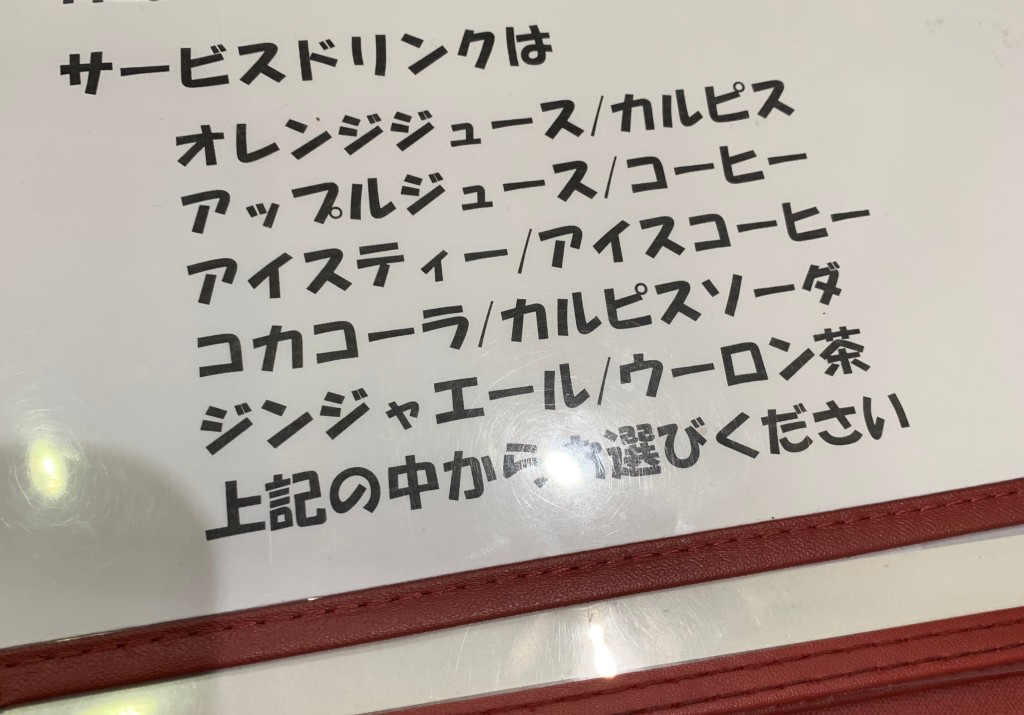 サービスドリンクは
オレンジジュース/カルピス
アップルジュース/コーヒー
アイスティー/アイスコーヒー
コカコーラ/カルピスソーダ
ジンジャエール/ウーロン茶
上記の中からお選びください